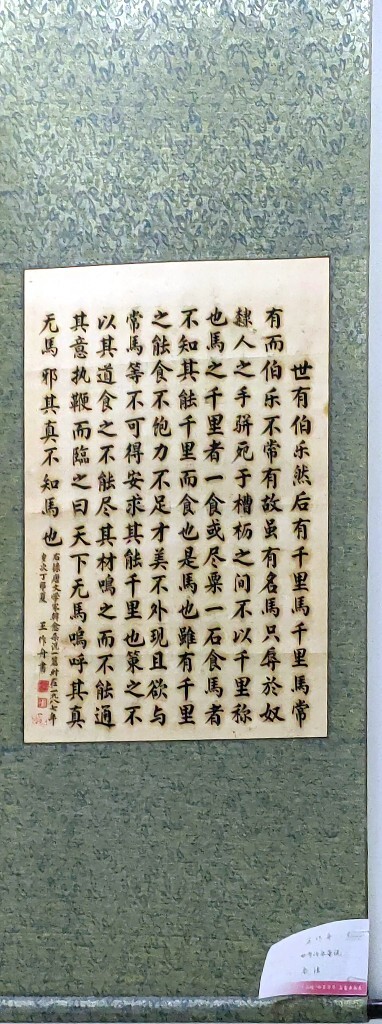 世有伯乐然后有千里馬千里馬常
有而伯乐不常有故虽有名馬只辱於奴
隸人之手骈死于槽枥之间不以千里称
也馬之千里者一食或尽粟一石食馬者
不知其能千里而食也是馬也雖有千里
之能食不飽力不足才美不外现且欲与
常馬等不可得安求其能千里也策之不
以其道食之不能尽其材鳴之而不能通
其意执鞭而臨之曰天下无馬嗚呼其真
无馬邪其真不知馬也
右錄唐文学家韓愈杂说一篇时在一九八七年
岁次丁卯夏 王作舟書